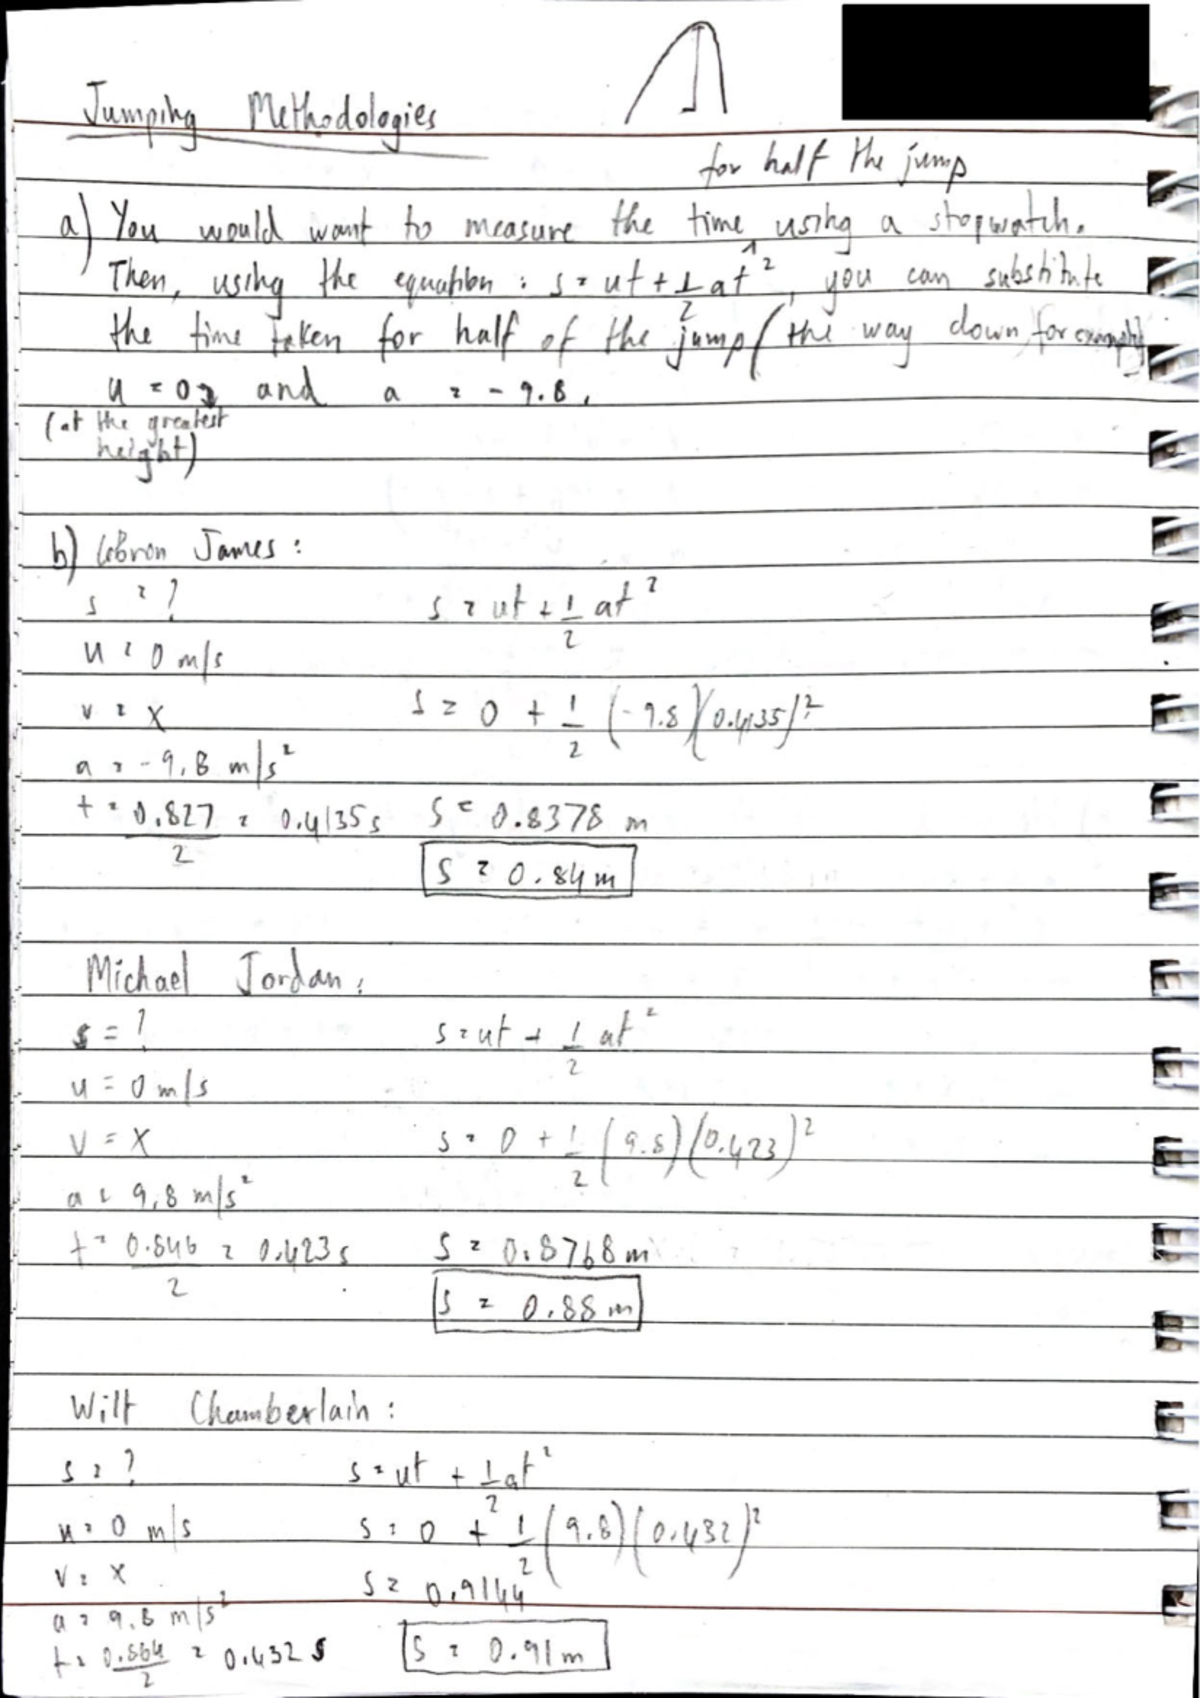 Jumping Methodologies
for half the jump
a) You would want to measure the time using a stopwatch.
Then, using the equation : s = ut + 1/2 at², you can substitute
the time taken for half of the jump (the way down, for example)
u = 0, and a = -9.8.
(at the greatest
height)
b) LeBron James :
s = ?
s = ut + 1/2 at²
u = 0 m/s
v = x
s = 0 + 1/2 (-9.8)(0.4135)²
a = -9.8 m/s²
t = 0.827/2 = 0.4135 s
s = 0.8378 m
s = 0.84 m
Michael Jordan :
s = ?
s = ut + 1/2 at²
u = 0 m/s
v = x
s = 0 + 1/2 (9.8)(0.423)²
a = 9.8 m/s²
t = 0.846/2 = 0.423 s
s = 0.8768 m
s = 0.88 m
Wilt Chamberlain :
s = ?
s = ut + 1/2 at²
u = 0 m/s
s = 0 + 1/2 (9.8)(0.432)²
v = x
s = 0.9144
a = 9.8 m/s²
t = 0.864/2 = 0.432 s
s = 0.91 m